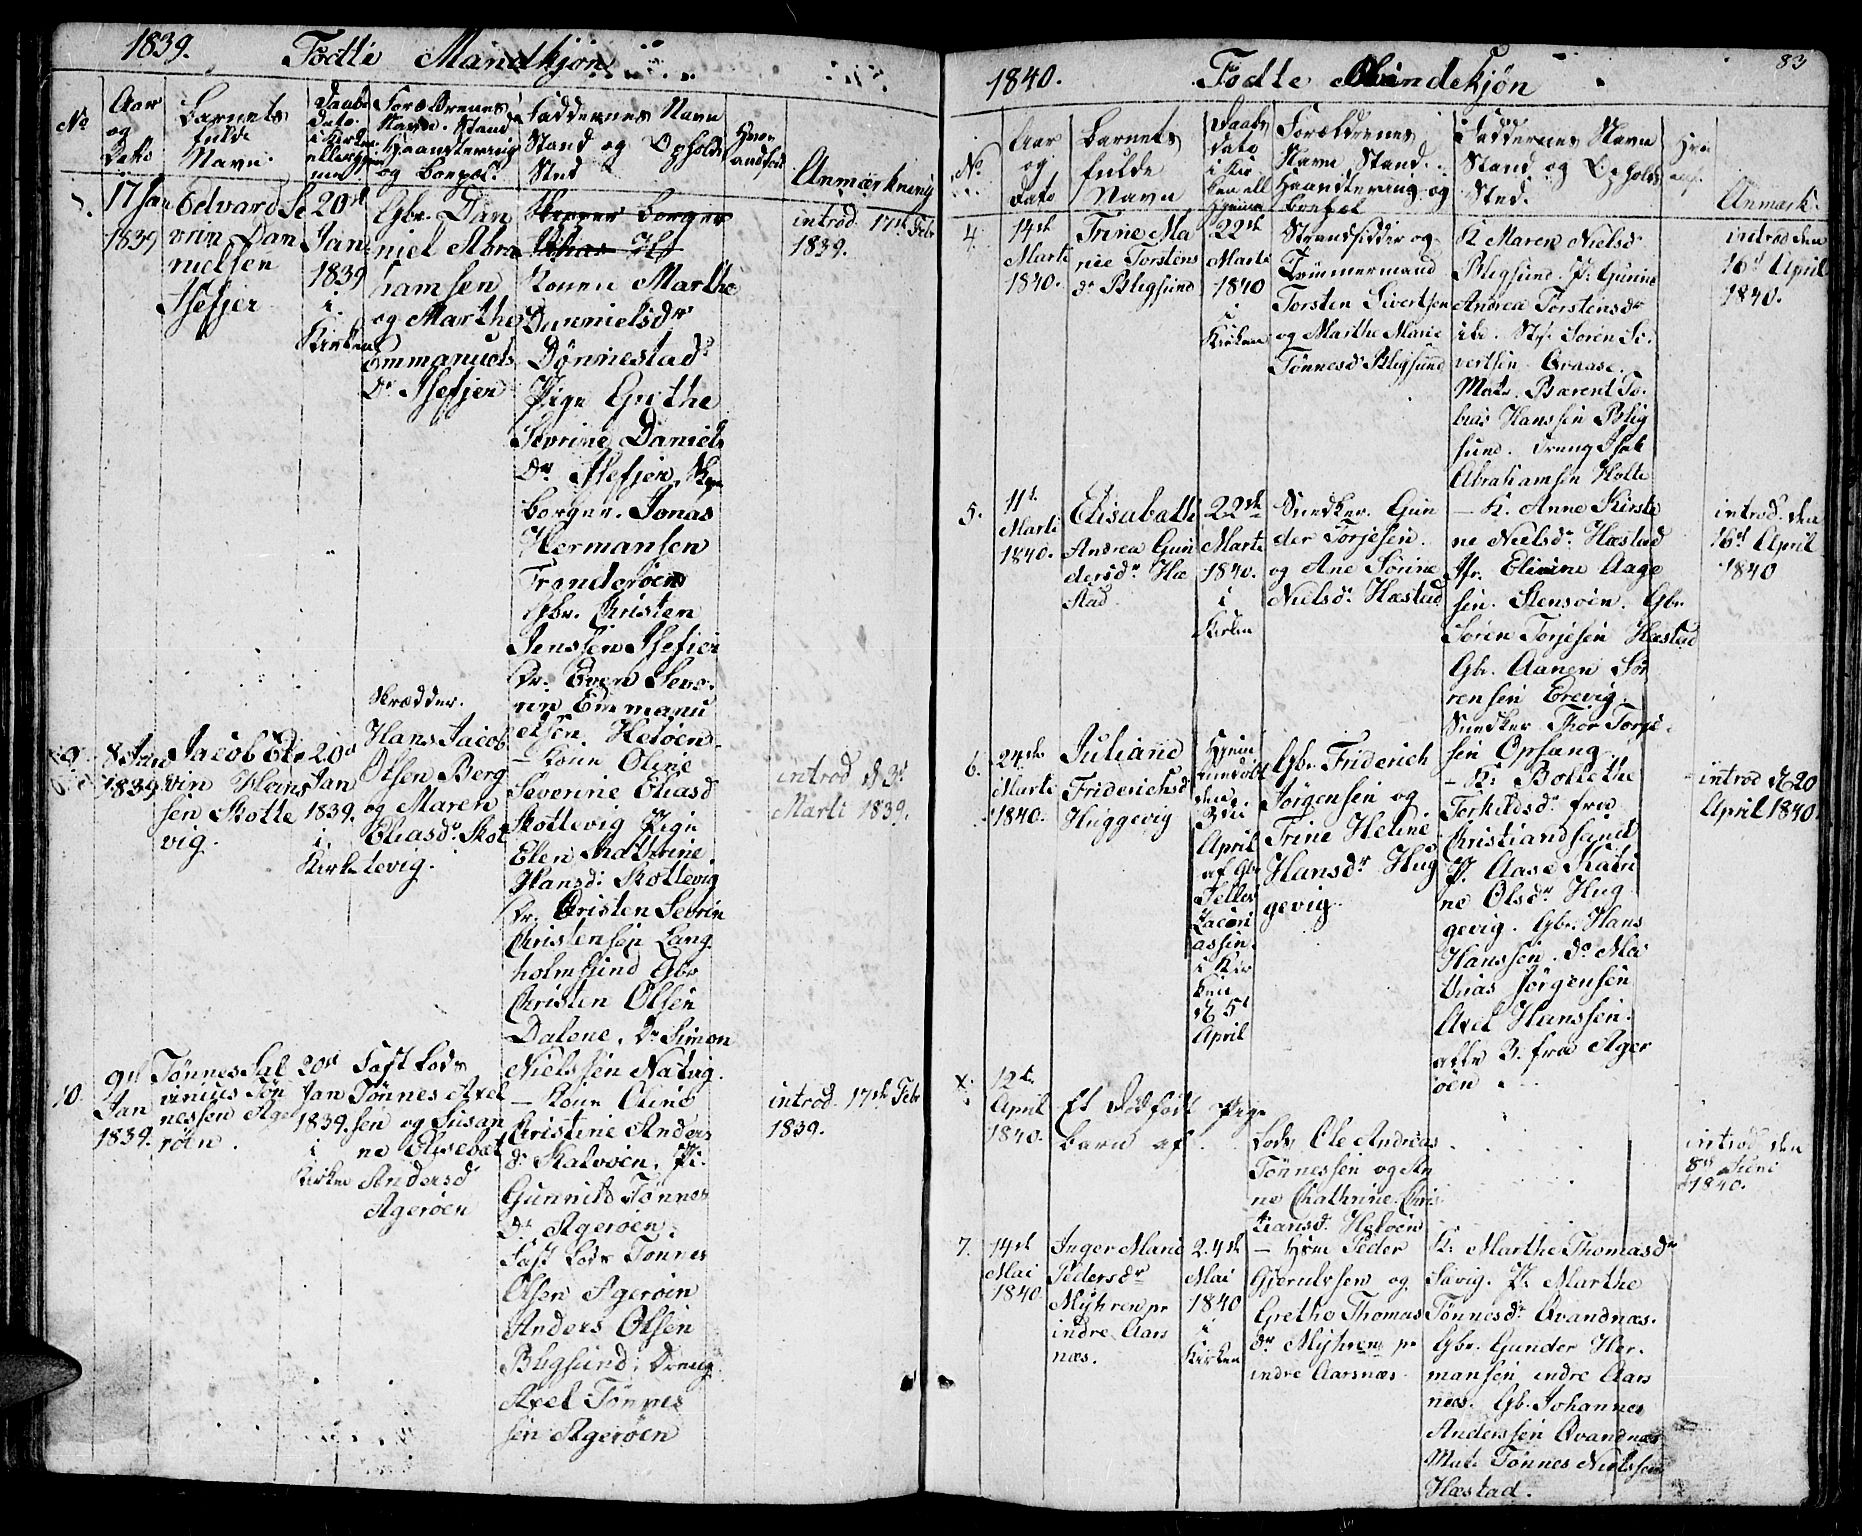 1839.
Födte Mandkjøn
No
Aar
og
Dato
Barnets
fulde
Navn.
Daabs
Dato
i Kirken
eller hjem
me
Forældrenes
Navn. Stand
Haandtering
og Boepæl.
Faddernes Navn
Stand og Opholds
Sted
Anmærkning
17 Jan
1839
Edvard Se
vrin Dan
nielsen
Isefjer
20de
Jan
1839
i
Kirken
Gbr. Dan
niel Abra
hamsen
og Marthe
Emmanuels
Dr Isefjer
Skipper Borger
Konen Marthe
Dannielsdr
Dønnestad
Pige Grethe
Sevrine Daniels
Dr. Isefjer, Skp
Borger. Jonas
Hermansen
Trandøroen
Gbr. Christen
Jenssen Isefier
Dr. Even Seve
rin Emmanu
elsen. Heløen
introd. 17de Febr
1839.
9
8 Jan
1839
Jacob Ed
vin Hans
sen Skotte
vig.
20de
Jan
1839.
i
Kirke
Skrædder.
Hans Jacob
Olsen Berg
og Maren
Eliasdr Skot
tevig.
– Kone Oline
Severine Eliasd
Skottevig Pige
Elen Kathrine
Hansdr Skottevig
Dr. Christen Sevrin
Christensen Lang
holmsund Gbr
Christen Olsen
Dalene, Dr Simon
Nielssen Natvig.
introd d 3de
Marti 1839.
10.
9de
Jan
1839.
Tønnes Sal
anius Tøn
nessen Ager
röen.
20de
Jan
1839.
i
Kirken
Fast Lods
Tønnes Axel
sen og Susan
ne Elisebet
Andersd
Ageröen
– Kone Oline
Christine Anders
dr Kalvøen, Pi.
Gunnild Tønnes
Dr Ageröen.
Fast Lods Tønnes
Olsen Ageröen
Anders Olsen
Bligsund; Dreng
Axel Tønnes
sen Ageröen
introd. 17de Febr
1839.
83
1840.
Födte Qvindekjön
No
Aar
og
Dato
Barnets
fulde
Navn
Daabs
Dato
i Kir
ken ell
Hjemme
Forældrenes
Navn Stand.
Haandtering og
Boepæl
Faddernes Navn
Stand og Opholds
Sted.
Anmærk.
4.
14de
Marti
1840.
Trine Ma
rie Torstens
dr Bligsund
22de
Marti
1840
i
Kirken
Strandsidder og
Tömmermand
Torsten Sivertsen
og Marthe Marie
Tønnesd Bligsund
K Maren Nielsdr
Bligsund. P: Gunild
Andrea Torstensdr
ibd. Sty. Sören Si
vertsen Graase.
Matr. Barent To
bias Hanssen Blig
sund. Dreng Isak
Abrahamsen Holte
introd den
16de April
1840.
5.
11te
Marti
1840.
Elisabath
Andrea Gun
dersdr. Hæ
stad
22de
Marti
1840.
i
Kirken
Snedker. Gun
der Torjesen.
og Ane Sörine
Nielsdr. Hæstad
– K. Anne Kirsti
ne Nielsdr. Hæstad
Jfr. Elimine Aage
sen. Stensöen. Gbr
Sören Torjesen Hæstad
Gbr. Aanen Sör
rensen Erevig.
Snedker Thor Torje
sen Opsang
introd. den
16de April
1840
6.
24de
Marti
1840.
Juliane
Friderichsd
Huggevig
Hjem
medöbt
den
April
af Gbr
Teller
Zacari
assen.
i Kir
ken
d. 5te
April
Gbr. Friderich
Jörgensen og
Trine Heline
Hansdr Hug
gevig.
– K: Bollethe
Terkildsdr fra
Christiandsand
P. Aase Katri
ne Olsdr. Hug
gevig. Gbr. Hans
Hanssen. do Ma
thias Jörgensen
Axel Hanssen.
alle 3 fra Ager
öen
introd d. 20
April 1840.
x.
12te
April
1840.
Et Dödfödt Pige
Barn af
Lods Ole Andreas
Tönnessen og An
ne Cathrine Chris
tiansdr. Helöen
introd den
8de Juni
1840.
7.
14de
Mai
1840
Inger Marie
Pedersdr
Myhren pr
indre Aars
næs.
24de
Mai
1840
i
Kirken
– Hjm Peder
Gjerulvsen og
Grethe Thomas
dr Myhren pr
indre Aarsnæs.
K: Marthe Thomasdr
Savig. P: Marthe
Tönnesdr Qvandnæs.
Gbr. Gunder Her
mansen indre Aars
næs. Gb. Johannes
Anderssen Qvandnæs
Mat: Tønnes Nielssen
Hæstad.